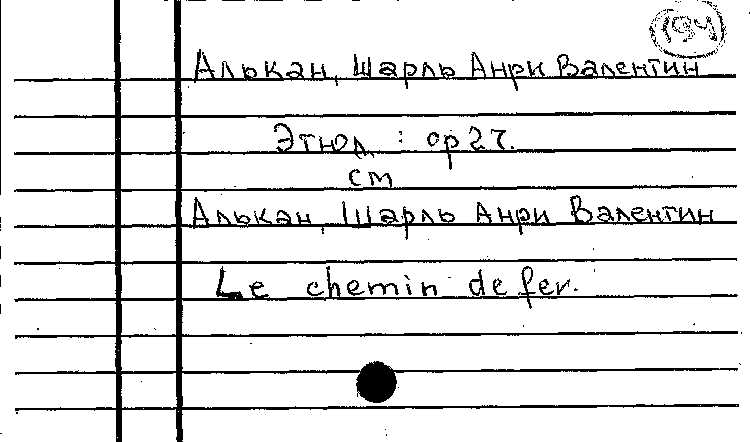 194
Алькан, Шарль Анри Валентин
Этюд : op 27.
см
Алькан, Шарль Анри Валентин
Le chemin de fer.